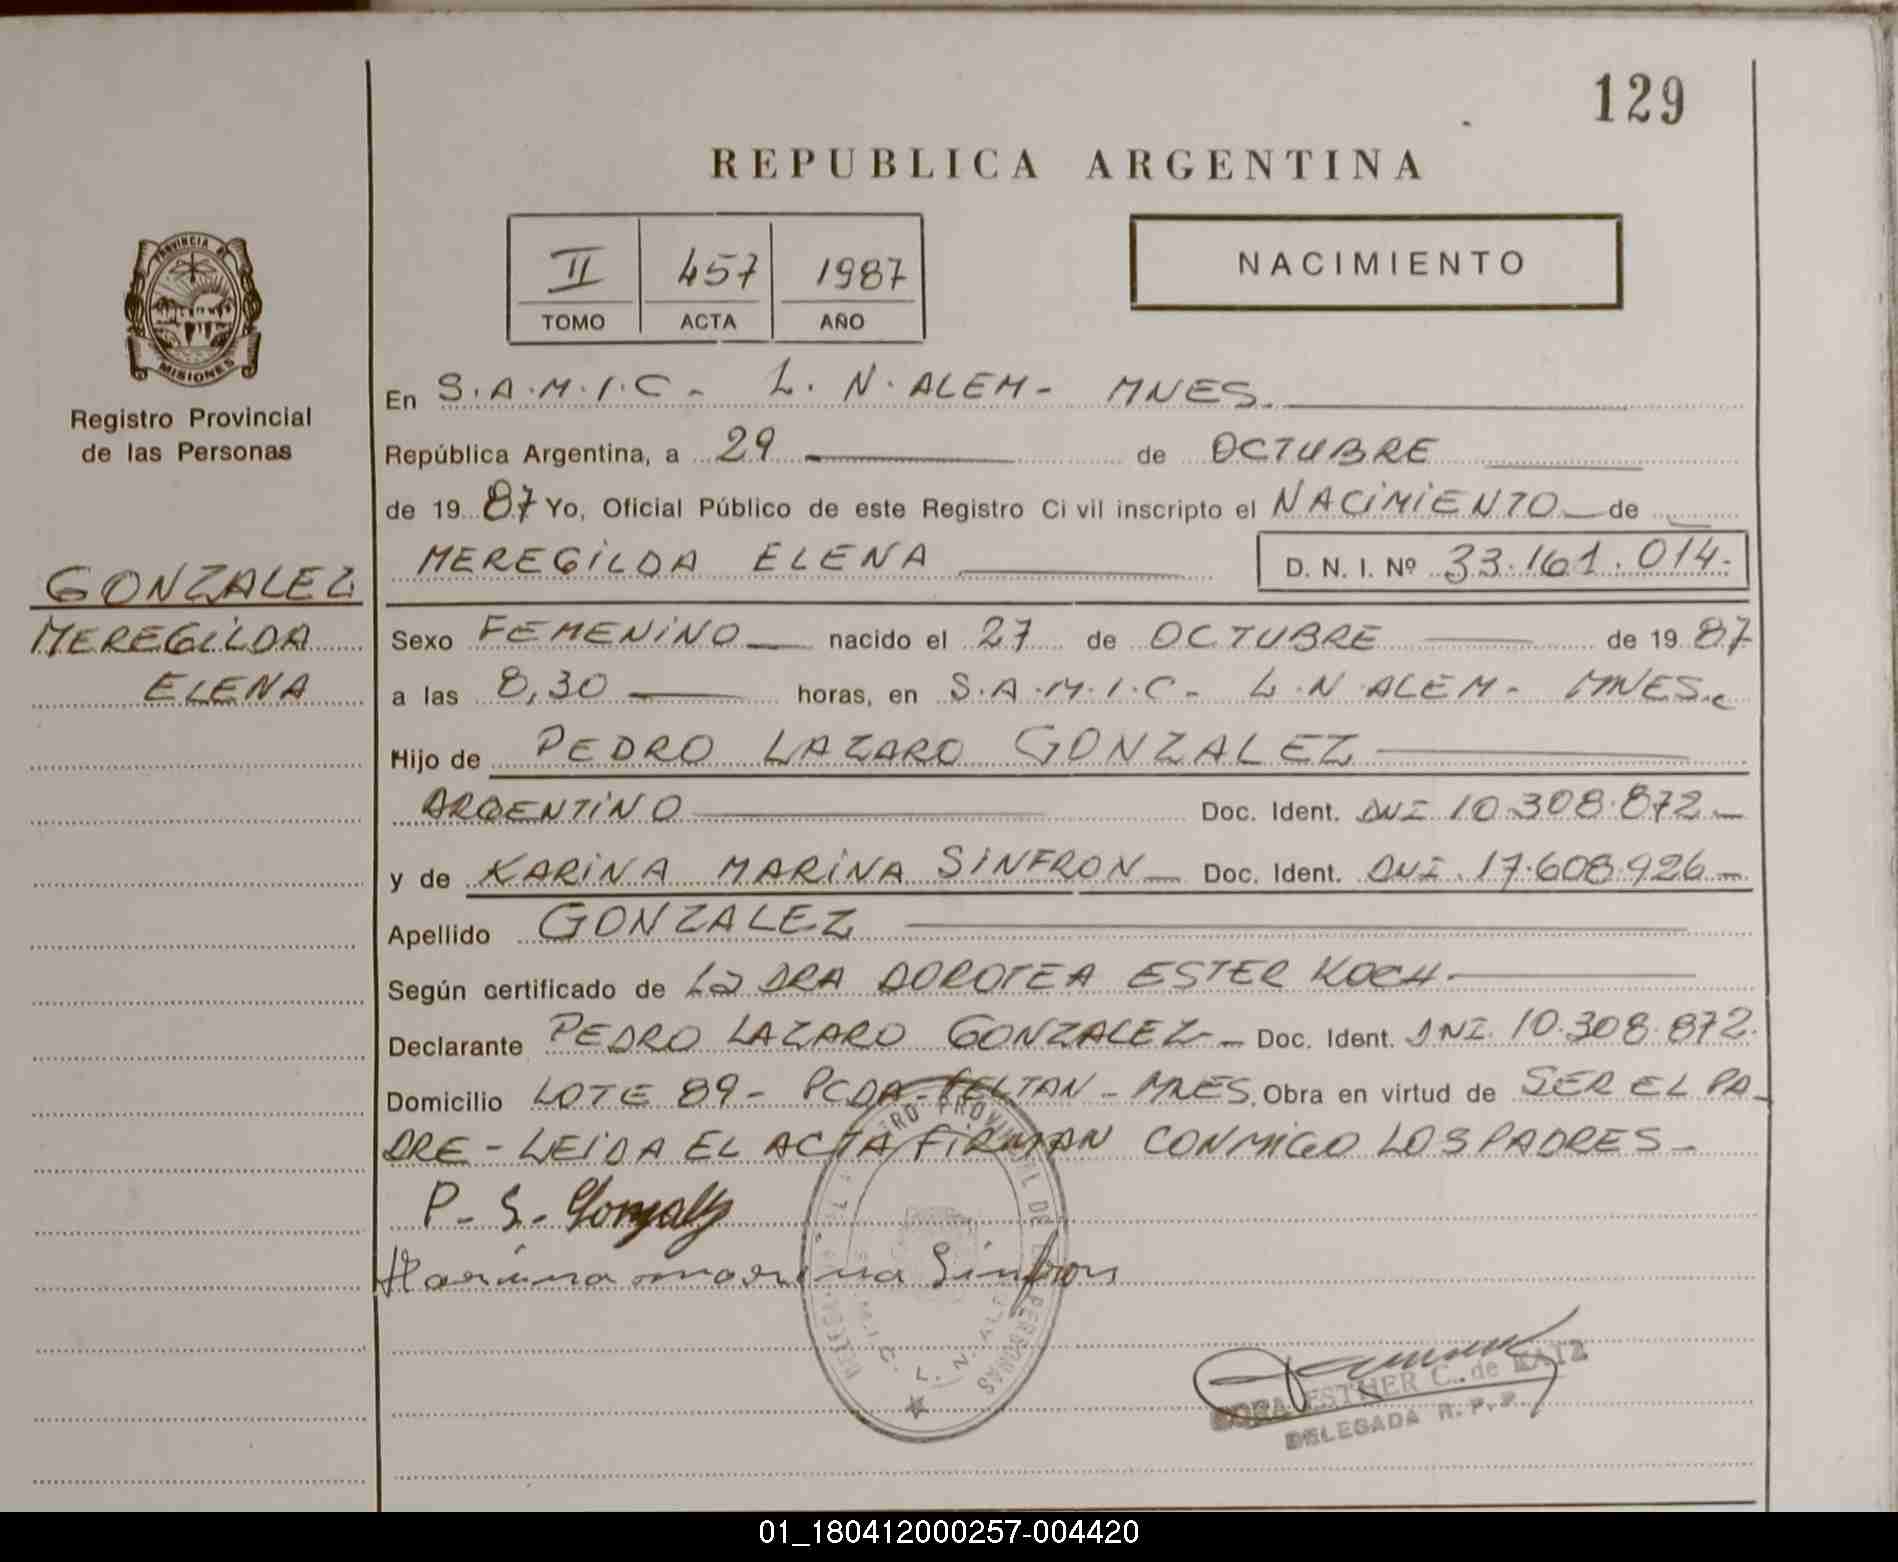 129
REPUBLICA ARGENTINA
II 457 1987
TOMO ACTA AÑO
NACIMIENTO
PROVINCIA DE
MISIONES
Registro Provincial
de las Personas
GONZALEZ
MEREGILDA
ELENA
En S.A.M.I.C- L.N.ALEM- MNES.
República Argentina, a 29 de OCTUBRE
de 1987 Yo, Oficial Público de este Registro Ci vil inscripto el NACIMIENTO de
MEREGILDA ELENA D.N.I. Nº 33.161.014.
Sexo FEMENINO nacido el 27 de OCTUBRE de 1987
a las 8,30 horas, en S.A.M.I.C- L.N ALEM- MNES.
Hijo de PEDRO LAZARO GONZALEZ
ARGENTINO Doc. Ident. DNI 10.308.872-
y de KARINA MARINA SINFRON Doc. Ident. DNI. 17.608.926-
Apellido GONZALEZ
Según certificado de La DRA DOROTEA ESTER KOCH
Declarante PEDRO LAZARO GONZALEZ- Doc. Ident. DNI. 10.308.872.
Domicilio LOTE 89- PCDA-BELTAN-MNES. Obra en virtud de SER EL PA-
DRE-LEIDA EL ACTA FIRMAN CONMIGO LOS PADRES-
P-S-Gonzalez
Karina marina Sinfron
ESTHER C. de KATZ
DELEGADA R.P.P.
01_180412000257-004420